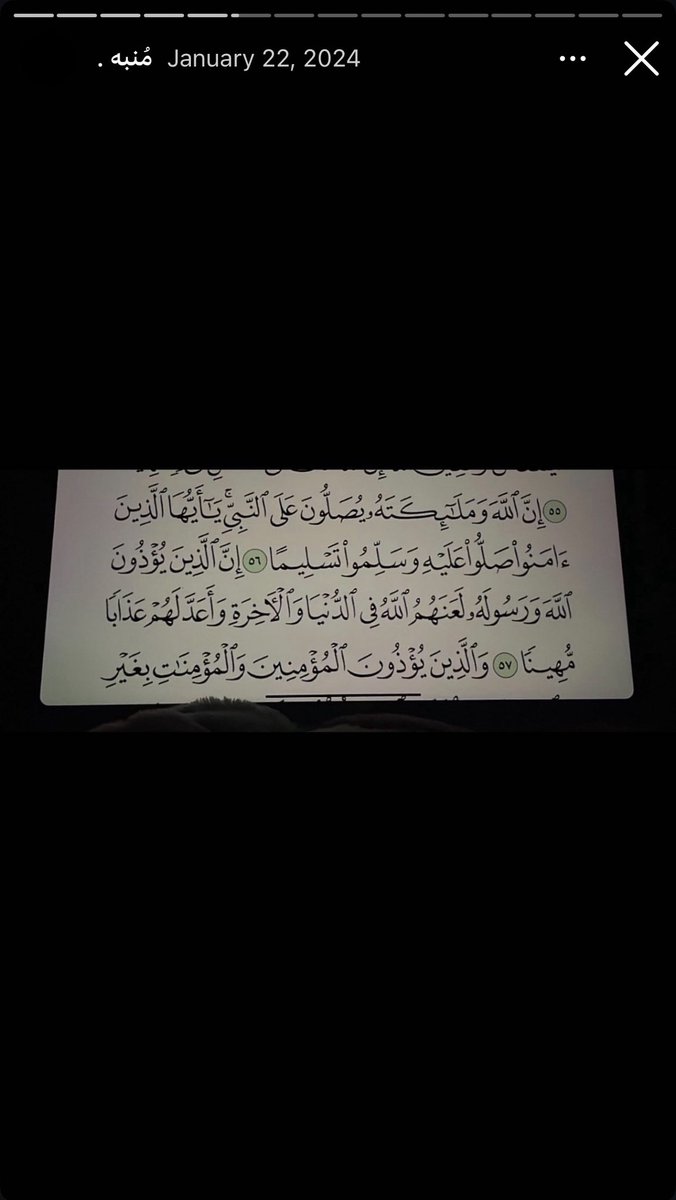 مُنبه . January 22, 2024
٥٥ إِنَّ ٱللَّهَ وَمَلَـٰٓئِكَتَهُۥ يُصَلُّونَ عَلَى ٱلنَّبِىِّۚ يَـٰٓأَيُّهَا ٱلَّذِينَ
ءَامَنُوا۟ صَلُّوا۟ عَلَيْهِ وَسَلِّمُوا۟ تَسْلِيمًا ٥٦ إِنَّ ٱلَّذِينَ يُؤْذُونَ
ٱللَّهَ وَرَسُولَهُۥ لَعَنَهُمُ ٱللَّهُ فِى ٱلدُّنْيَا وَٱلْـَٔاخِرَةِ وَأَعَدَّ لَهُمْ عَذَابًا
مُّهِينًا ٥٧ وَٱلَّذِينَ يُؤْذُونَ ٱلْمُؤْمِنِينَ وَٱلْمُؤْمِنَـٰتِ بِغَيْرِ